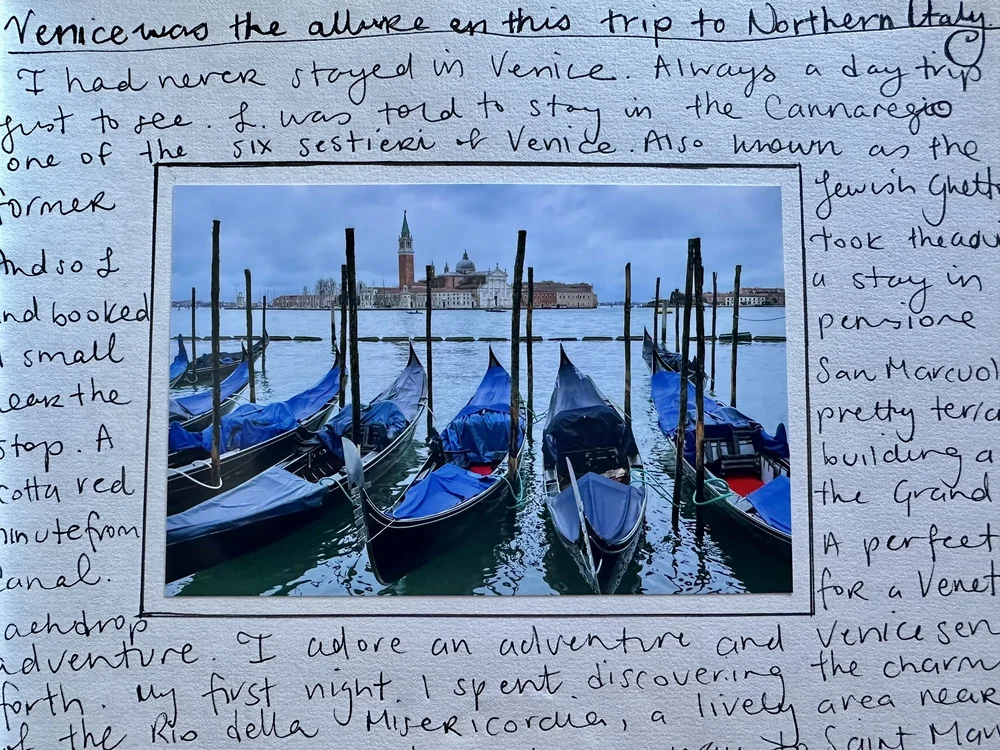 Venice was the allure on this trip to Northern Italy.
I had never stayed in Venice. Always a day trip
just to see. I was told to stay in the Cannaregio
one of the six sestieri of Venice. Also known as the
former Jewish Ghett
And so I took the advi
nd booked a stay in
small pensione
ear the San Marcuol
stop. A pretty terra
cotta red building a
inute from the Grand
anal. A perfect
achdrop for a Venet
adventure. I adore an adventure and Venice sen
forth. My first night, I spent discovering the charm
of the Rio della Misericordia, a lively area near
to Saint Mar